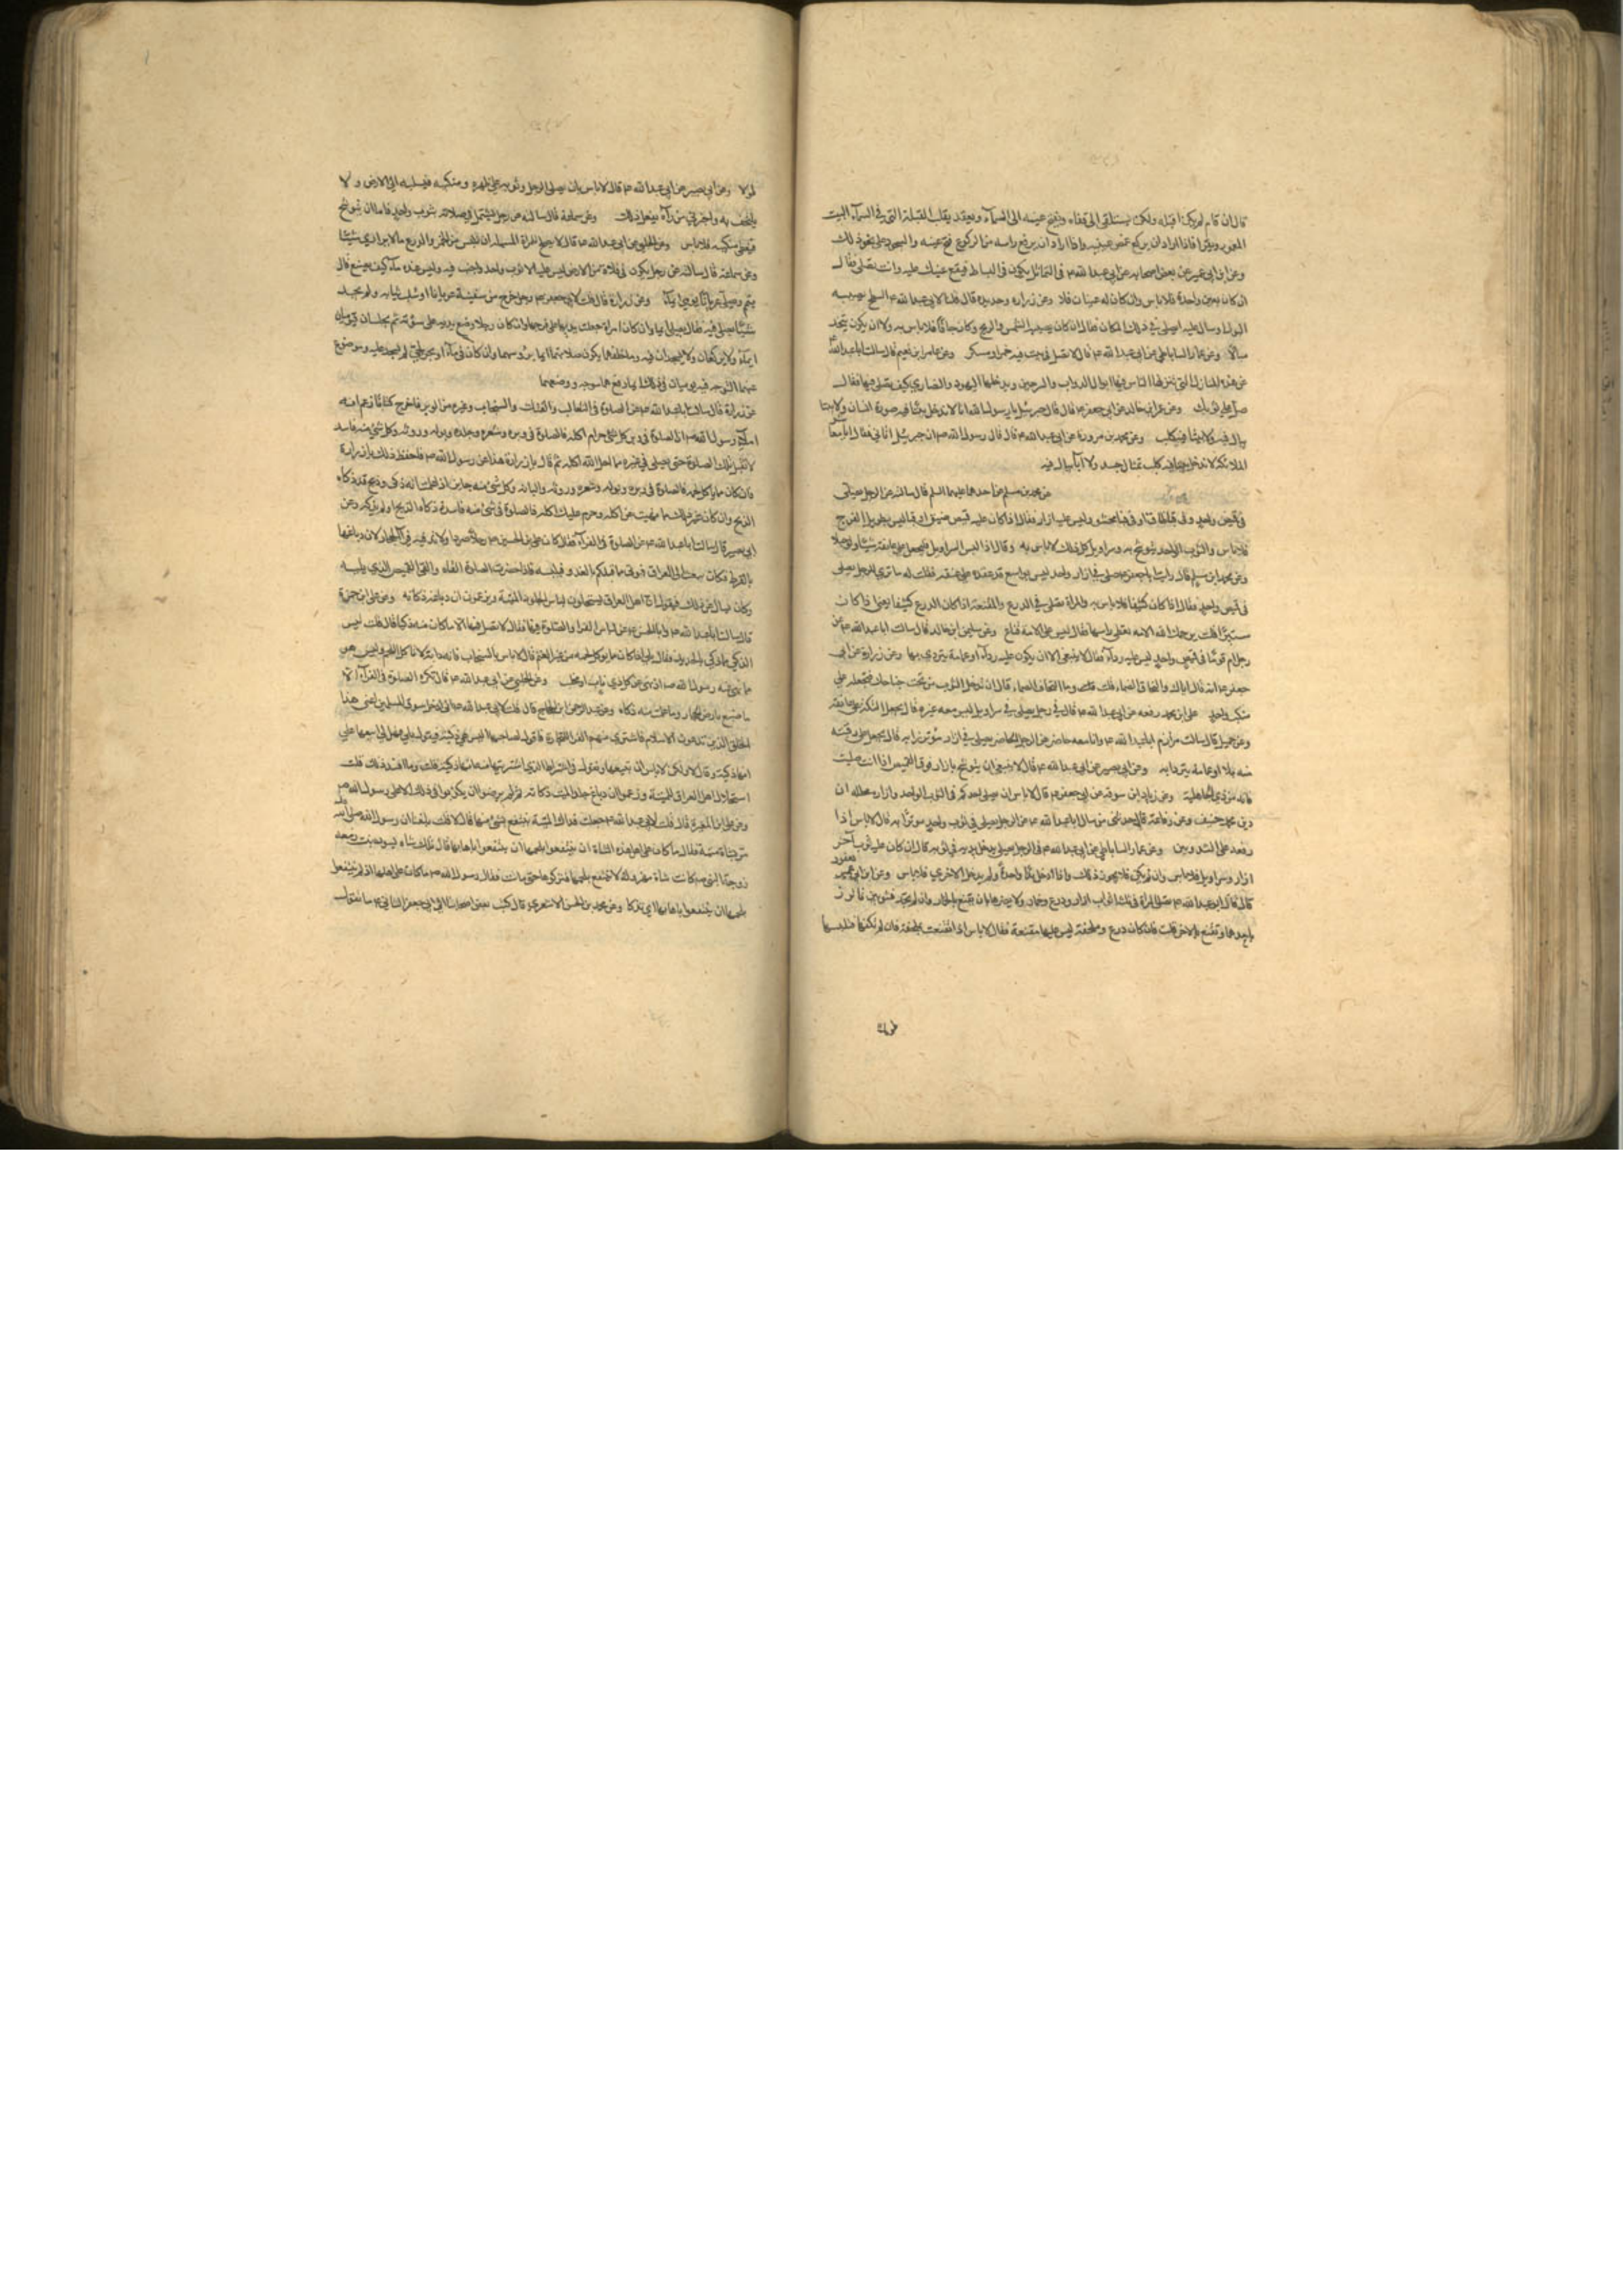 قال ان قام لم يكن له قبله ولكن يستلقى الى قفاه ويفتح عينيه الى السماء ويعقد بقلبه القبلة التى فى السماء البيت
المعمور ويقرا فاذا اراد ان يركع غمض عينيه واذا اراد ان يرفع راسه من الركوع فتح عينيه والسجود على نحو ذلك
وعن ابن ابى عمير عن بعض اصحابه عن ابى عبدا لله ع فى التماثيل يكون فى البساط فيقع عينك عليه وانت تصلى فقال
ان كان بعين واحدة فلا باس وان كان له عينان فلا وعن زراره وحديد قال قلنا لابى عبدا لله ع السطح يصيبه
البول او يبال عليه ايصلى فى ذلك المكان فقال ان كان يصيبه الشمس والريح وكان جافا فلا باس به ولا ان يكون يتخذ
مبالا وعن عمار الساباطى عن ابى عبدا لله ع قال لا تصل فى بيت فيه خمر او مسكر وعن عامر ابن نعيم قال سالت ابا عبد الله
عن هذه المنازل التى ينزلها الناس فيها ابوال الدواب والسرجين ويدخلها اليهود والنصارى كيف يصلى فيها فقال
صل على ثوبك وعن عمرو بن خالد عن ابى جعفر ع قال قال جبرئيل يا رسول الله انا لا ندخل بيتا فيه صورة انسان ولا بيتا
يبال فيه ولا بيتا فيه كلب وعن محمد بن مروان عن ابى عبدا لله ع قال قال رسول الله ص ان جبرئيل اتانى فقال انا معاشر
الملائكة لا ندخل بيتا فيه كلب ولا تمثال جسد ولا اناء يبال فيه
عن محمد بن مسلم عن احدهما عليهما السلم قال سالته عن الرجل يصلى
فى قميص واحد او قباء محشو وليس عليه ازار فقال اذا كان عليه قميص ضيق او قبا ليس بطويل الفرج
فلا باس والثوب الواحد يتوشح به وسراويل كل ذلك لا باس به وقال اذا لبس السراويل فليجعل على عاتقه شيئا ولو حبلا
وعن محمد ابن مسلم قال رايت ابا جعفر ع صلى فى ازار واحد ليس بواسع قد عقده على عنقه فقلت له ما ترى للرجل يصلى
فى قميص واحد فقال اذا كان كثيفا فلا باس به والمراة تصلى فى الدرع والمقنعة اذا كان الدرع كثيفا يعنى اذا كان
ستيرا قلت يرحمك الله الامه تغطى راسها فقال ليس على الامه قناع وعن سليمن ابن خالد قال سالت ابا عبد الله ع عن
رجل ام قوما فى قميص واحد ليس عليه رداء فقال لا ينبغى الا ان يكون عليه رداء او عمامة يرتدى بها وعن زرارة عن ابى
جعفر ع انه قال اياك والتحاف الصماء قلت وما التحاف الصماء قال ان تدخل الثوب من تحت جناحك فتجعله على
منكب واحد على ابن محمد رفعه عن ابى عبدا لله ع قال فى رجل يصلى فى سراويل ليس معه غيره قال يجعل التكة على عاتقه
وعن جميل قال سالت مرازم ابا عبدا لله ع وانا معه حاضر عن الرجل الحاضر يصلى فى ازار مؤتزرا به قال يجعل على رقبته
منديلا او عمامة يرتدى به وعن ابى بصير عن ابى عبدا لله ع قال لا ينبغى ان يتوشح بازار فوق القميص اذا انت صليت
فانه من زى الجاهلية وعن زياد ابن سوقه عن ابى جعفر ع قال لا باس ان يصلى احدكم فى الثوب الواحد وازاره محلله ان
دين محمد حنيف وعن رفاعة قال حدثنى من سال ابا عبدا لله ع عن الرجل يصلى فى ثوب واحد مؤتزرا به قال لا باس اذا
رفعه على الثندوتين وعن عمار الساباطى عن ابى عبدا لله ع فى الرجل يصلى يدخل يديه فى ثوبه قال ان كان عليه ثوب آخر
ازار وسراويل فلا باس وان لم يكن فلا يجوز ذلك واذا ادخل يدا واحدة ولم يدخل الاخرى فلا باس وعن ابن ابى يعفور
قال قال ابو عبدا لله ع تصلى المراة فى ثلاثة اثواب ازار ودرع وخمار ولا يضرها بان تقنع بالخمار وان لم تجد فثوبين تاتزر
باحدهما وتقنع بالاخر قلت فان كان درع وملحفة ليس عليها مقنعة فقال لا باس اذا تقنعت بملحفة فان لم تكفها فتلبسها
طولا
طولا وعن ابى بصير عن ابى عبدا لله ع قال لا باس بان يصلى الرجل وثوبه على ظهره ومنكبيه فيسبله الى الارض ولا
يلتحف به واخبرنى من رآه يفعل ذلك وعن سماعة قال سالته عن رجل يشتمل فى صلاته بثوب واحد قال اما ان يتوشح
فيغطى منكبيه فلا باس وعن الحلبى عن ابى عبدا لله ع قال لا يصلح للمراة المسلمة ان تلبس من الخمر والدروع ما لا يوارى شيئا
وعن سماعة قال سالته عن رجل يكون فى فلاة من الارض ليس عليه الا ثوب واحد واجنب فيه وليس عنده ماء كيف يصنع قال
يتيمم ويصلى عريانا يومى ايماء وعن زرارة قال قلت لابى جعفر ع رجل خرج من سفينة عريانا او سلب ثيابه ولم يجد
شيئا يصلى فيه فقال يصلى ايماء وان كان امراة جعلت يدها على فرجها وان كان رجلا وضع يده على سوءته ثم يجلسان فيوميان
ايماء ولا يركعان ولا يسجدان فيبدو ما خلفهما يكون صلاتهما ايماء برؤسهما وان كان فى ماء او بحر لجى لم يسجدا عليه وموضوع
عنهما التوجه فيه يوميان فى ذلك ايماء رفعهما توجه ووضعهما
عن زرارة قال سالت ابا عبدا لله ع عن الصلوة فى الثعالب والفنك والسنجاب وغيره من الوبر فاخرج كتابا زعم انه
املاء رسول الله ص ان الصلوة فى وبر كل شئ حرام اكله فالصلوة فى وبره وشعره وجلده وبوله وروثه وكل شئ منه فاسد
لا تقبل تلك الصلوة حتى يصلى فى غيره مما احل الله اكله ثم قال يا زرارة هذا عن رسول الله ص فاحفظ ذلك يا زرارة
فان كان مما ياكل لحمه فالصلوة فى وبره وبوله وشعره وروثه والبانه وكل شئ منه جايز اذا علمت انه ذكى وقد ذكاه
الذبح وان كان غير ذلك مما نهيت عن اكله وحرم عليك اكله فالصلوة فى شئ منه فاسدة ذكاه الذبح او لم يذكه وعن
ابى بصير قال سالت ابا عبدا لله ع عن الصلوة فى الفراء فقال كان على بن الحسين ع رجلا صردا ولا تدفيه فراء الحجاز لان دباغها
بالقرظ فكان يبعث الى العراق فيوتى مما قبلكم بالفرو فيلبسه فاذا حضرت الصلوة القاه والقى القميص الذى يليه
وكان يسال عن ذلك فيقول ان اهل العراق يستحلون لباس الجلود الميتة ويزعمون ان دباغه ذكاته وعن على ابن حمزة
قال سالت ابا عبدا لله ع وابا الحسن ع عن لباس الفراء والصلوة فيها فقال لا تصل فيها الا ما كان منه ذكيا قال قلت ليس
الذكى ما ذكى بالحديد فقال بلى اذا كان مما يوكل لحمه من غير الغنم قال لا باس بالسنجاب فانه دابة لا تاكل اللحم وليس هو
مما نهى عنه رسول الله ص اذ نهى عن كل ذى ناب ومخلب وعن الحلبى عن ابى عبدا لله ع قال تكره الصلوة فى الفراء الا
ما صنع بارض الحجاز وما علمت منه ذكاة وعن عبد الرحمن ابن الحجاج قال قلت لابى عبدا لله ع انى ادخل سوق المسلمين اعنى هذا
الخلق الذين يدعون الاسلام فاشترى منهم الفراء للتجارة فاقول لصاحبها اليس هى ذكية فيقول بلى فهل لى ابيعها على
انها ذكية وقال لا ولكن لا باس ان تبيعها وتقول قد شرط الذى اشتريتها منه انها ذكية قلت وما افسد ذلك قلت
استحلال اهل العراق للميتة وزعموا ان دباغ جلد الميت ذكاته ثم لم يرضوا ان يكذبوا فى ذلك الا على رسول الله ص
وعن على ابن المغيرة قال قلت لابى عبدا لله ع جعلت فداك الميتة ينتفع بشئ منها قال لا قلت بلغنا ان رسول الله صلى الله
مر بشاة ميتة فقال ما كان على اهل هذه الشاة ان لم ينتفعوا بلحمها ان ينتفعوا باهابها قال تلك شاة لسودة بنت زمعه
زوجة النبى ص كانت شاة مهزولة لا ينتفع بلحمها فتركوها حتى ماتت فقال رسول الله ص ما كان على اهلها اذ لم ينتفعوا
بلحمها ان ينتفعوا باهابها اى تذكا وعن محمد بن الحسن الاشعرى قال كتب بعض اصحابنا الى ابى جعفر الثانى ع ما تقول